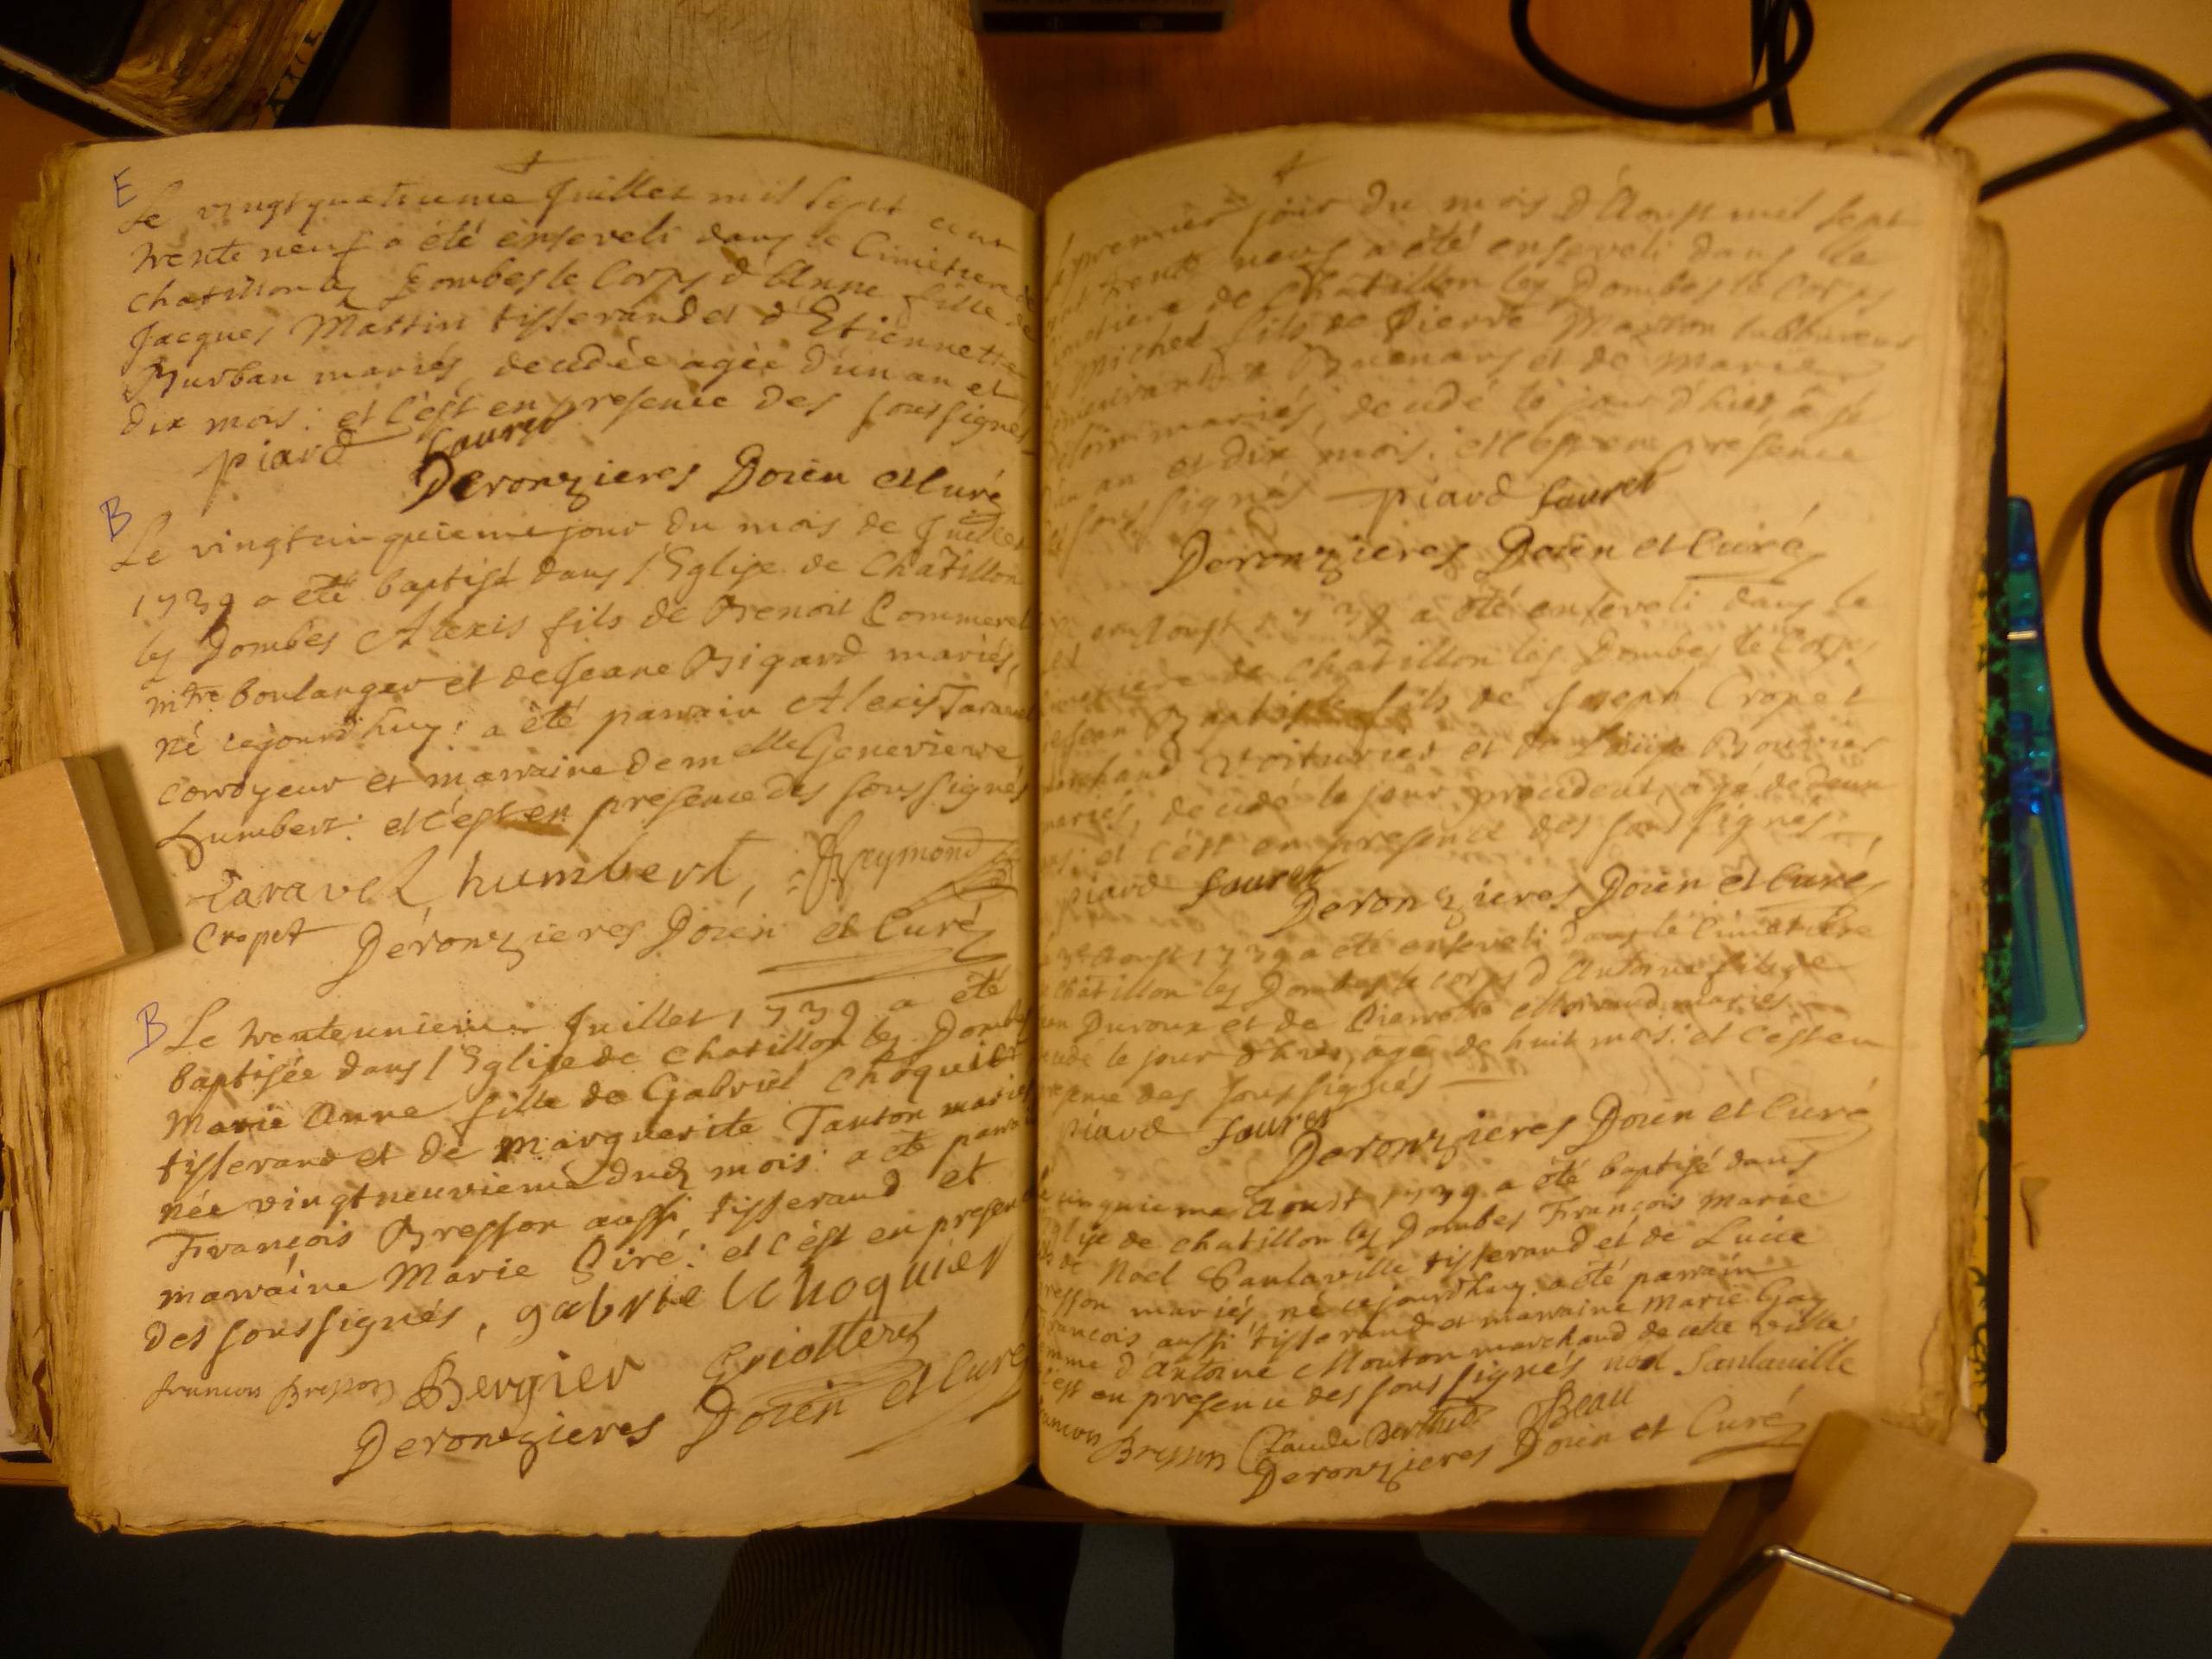 E
Le vingtquatrieme Juillet mil sept cent
trente neuf a été enseveli dans le Cimetiere de
chatillon les Dombes le Corps d'Anne fille de
Jacques Martin tisserand et d'Etiennette
Burban mariés, decedée agée d'un an et
dix mois : et c'est en presence des soussignés
piard faurer
Deronzieres Doien et Curé
B
Le vingtcinquieme jour du mois de Juillet
1739 a été baptisé dans l'Eglise de Chatillon
les Dombes Alexis fils de Benoit Commeret
mtre boulanger et de Jeane Bigard mariés,
né cejourd'huy : a été parrain Alexis Taravel
cordyeur et marraine demelle Genevieve
humbert : et c'est en presence des soussignés
Taravel humbert, Reymond
Cropet Deronzieres Doien et Curé
B
Le trenteunieme Juillet 1739 a été
baptisée dans l'Eglise de chatillon les Dombes
Marie Anne fille de Gabriel choquier
tisserand et de Marguerite Tanton mariés
née vingtneuvieme dud mois : a été parrain
François Bresson aussi tisserand et
marraine Marie Siré : et c'est en presence
des soussignés, gabriel choquier
francois Bresson Bergier Griotteret
Deronzieres Doien et Curé
premier jour du mois d'Aoust mil sept
trente neuf a été enseveli dans le
cimetiere de Chatillon les Dombes le Corps
de michel fils de Pierre Marion laboureur
demeurant a Buenans et de Marie
mariés, decedé le jour d'hier, agé
d'un an et dix mois : et c'est en presence
des soussignés piard faurer
Deronzieres Doien et Curé
aoust 1739 a été enseveli dans le
cimetiere de chatillon les Dombes le Corps
de Jean Baptiste fils de Joseph Cropet
marchand voiturier et de Louise Bouvier
mariés, decedé le jour precedent, agé de deux
ans : et c'est en presence des soussignés
piard faurer
Deronzieres Doien et Curé
aoust 1739 a été enseveli dans le Cimetiere
de chatillon les Dombes le corps d'Antoine fils de
Duroux et de Pierrette Morand mariés
decedé le jour d'hier, agé de huit mois : et c'est en
presence des soussignés
piard faurer
Deronzieres Doien et Curé
Le cinquieme Aoust 1739 a été baptisé dans
l'Eglise de chatillon les Dombes François Marie
fils de Noel Santaville tisserand et de Lucie
Bresson mariés, né cejourdhuy : a été parrain
François aussi tisserand et marraine Marie Gay
femme d'Antoine Mouton marchand de cette ville
c'est en presence des soussignés noel Santaville
francois Bresson Claude Berthet Beau
Deronzieres Doien et Curé